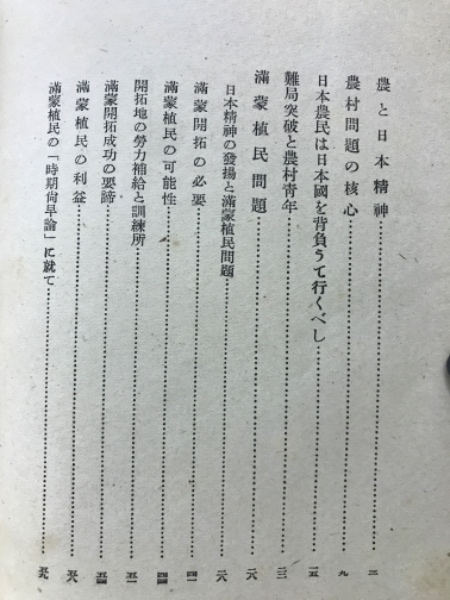 農と日本精神……三
農村問題の核心……九
日本農民は日本國を背負うて行くべし……一五
難局突破と農村青年……三
滿蒙植民問題……二六
日本精神の發揚と滿蒙植民問題……二六
滿蒙開拓の必要……四一
滿蒙植民の可能性……四四
開拓地の勞力補給と訓練所……五一
滿蒙開拓成功の要諦……五四
滿蒙植民の利益……五八
滿蒙植民の「時期尙早論」に就て……五九